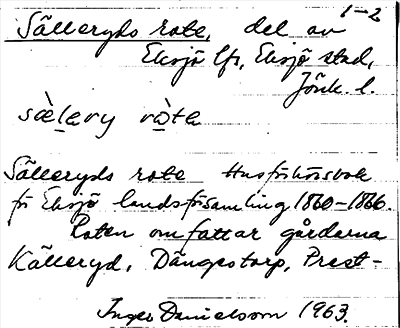 1-2
Sälleryds rote, del av
Eksjö lfs, Eksjö stad,
Jönk. l.
sæ̀lary ròta
Sälleryds rote Husförhörsbok
för Eksjö landsförsamling 1860-1866.
Roten omfattar gårdarna
Källeryd, Dängestorp, Prest-
Inger Danielsson 1963.